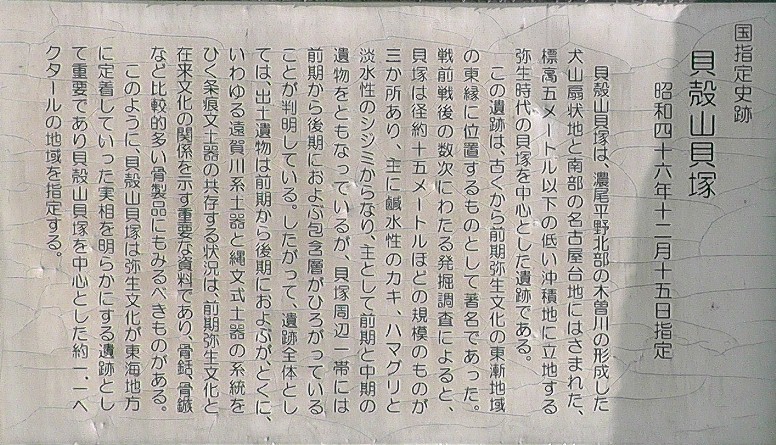 国指定史跡
貝殻山貝塚
昭和四十六年十二月十五日指定
貝殻山貝塚は、濃尾平野北部の木曽川の形成した
犬山扇状地と南部の名古屋台地にはさまれた、
標高五メートル以下の低い沖積地に立地する
弥生時代の貝塚を中心とした遺跡である。
この遺跡は、古くから前期弥生文化の東漸地域
の東縁に位置するものとして著名であった。
戦前戦後の数次にわたる発掘調査によると、
貝塚は径約十五メートルほどの規模のものが
三か所あり、主に鹹水性のカキ、ハマグリと
淡水性のシジミからなり、主として前期と中期の
遺物をともなっているが、貝塚周辺一帯には
前期から後期におよぶ包含層がひろがっている
ことが判明している。したがって、遺跡全体とし
ては、出土遺物は前期から後期におよぶが、とくに、
いわゆる遠賀川系土器と縄文式土器の系統を
ひく条痕文土器の共存する状況は、前期弥生文化と
在来文化の関係を示す重要な資料であり、骨銛、骨鏃
など比較的多い骨製品にもみるべきものがある。
このように、貝殻山貝塚は弥生文化が東海地方
に定着していった実相を明らかにする遺跡とし
て重要であり貝殻山貝塚を中心とした約一.一ヘ
クタールの地域を指定する。